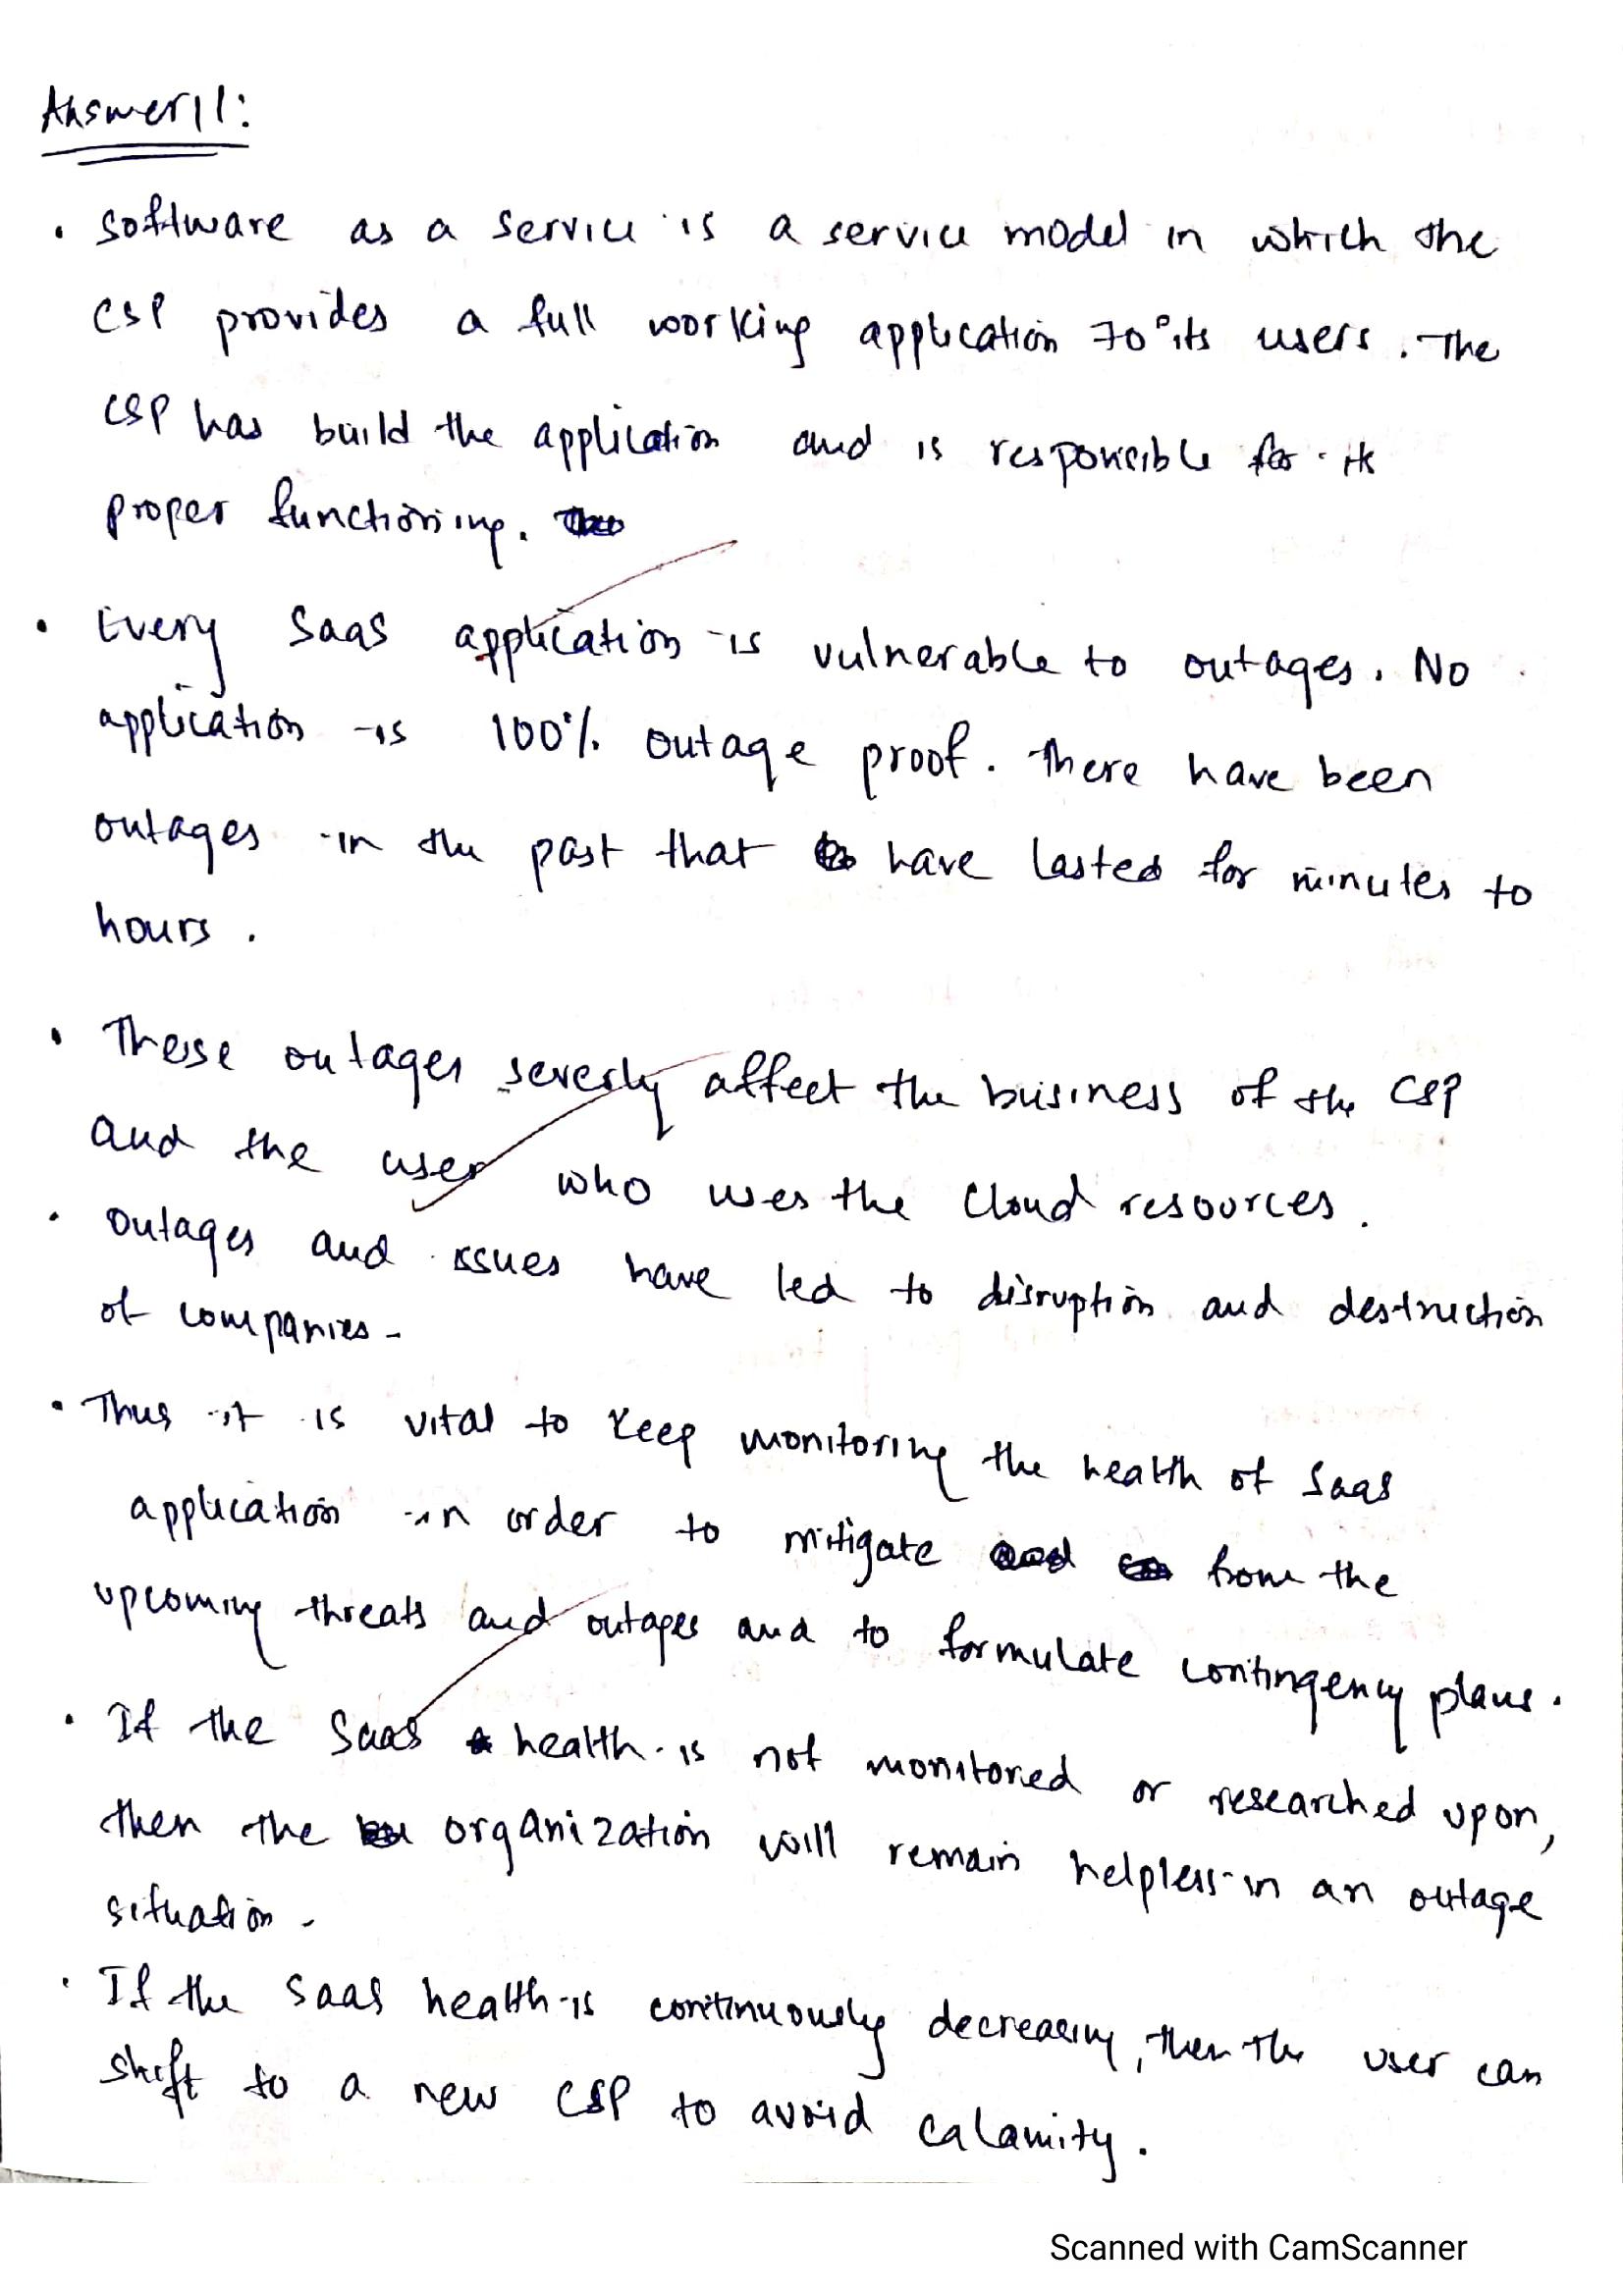 Answer 11:
• Software as a service is a service model in which the
CSP provides a full working application to its users. The
CSP has build the application and is responsible for its
proper functioning.
• Every SaaS application is vulnerable to outages. No
application is 100% outage proof. There have been
outages in the past that have lasted for minutes to
hours.
• These outages severly affect the business of the CSP
and the user who uses the Cloud resources.
• Outages and issues have led to disruption and destruction
of companies.
• Thus it is vital to keep monitoring the health of SaaS
application in order to mitigate from the
upcoming threats and outages and to formulate contingency plans.
• If the SaaS health is not monitored or researched upon,
then the organization will remain helpless in an outage
situation.
• If the SaaS health is continuously decreasing, then the user can
shift to a new CSP to avoid calamity.
Scanned with CamScanner